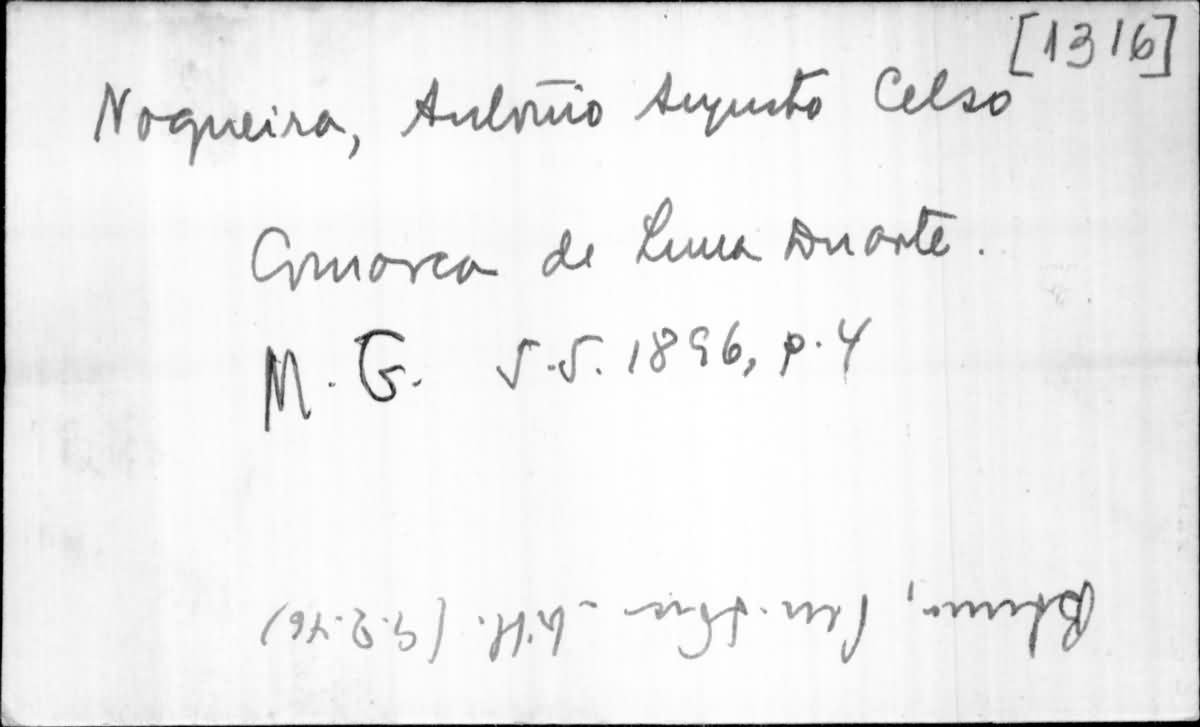 [1316]
Nogueira, António Augusto Celso
Comarca de Lima Duarte.
M. G. 5.5.1896, p. 4